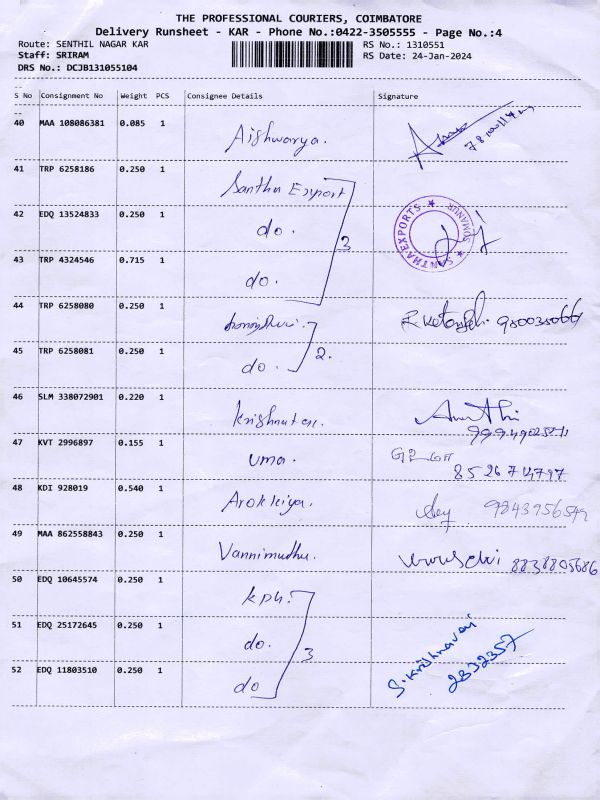 THE PROFESSIONAL COURIERS, COIMBATORE
Delivery Runsheet - KAR - Phone No.:0422-3505555 - Page No.:4
Route: SENTHIL NAGAR KAR RS No.: 1310551
Staff: SRIRAM RS Date: 24-Jan-2024
DRS No.: DCJB131055104
S No Consignment No Weight PCS Consignee Details Signature
40 MAA 108086381 0.085 1 Aishwarya.
41 TRP 6258186 0.250 1 Santha Export
SANTHA EXPORTS ★ SOMANUR ★
42 EDQ 13524833 0.250 1 do.
3
43 TRP 4324546 0.715 1 do.
44 TRP 6258080 0.250 1
45 TRP 6258081 0.250 1 do. 2.
46 SLM 338072901 0.220 1
47 KVT 2996897 0.155 1 uma.
8526714797
48 KDI 928019 0.540 1 Arokkiya.
49 MAA 862558843 0.250 1 Vannimuthu. 8838805686
50 EDQ 10645574 0.250 1 kph.
51 EDQ 25172645 0.250 1 do. 3
52 EDQ 11803510 0.250 1 do
S. Krishnaveni
2832357